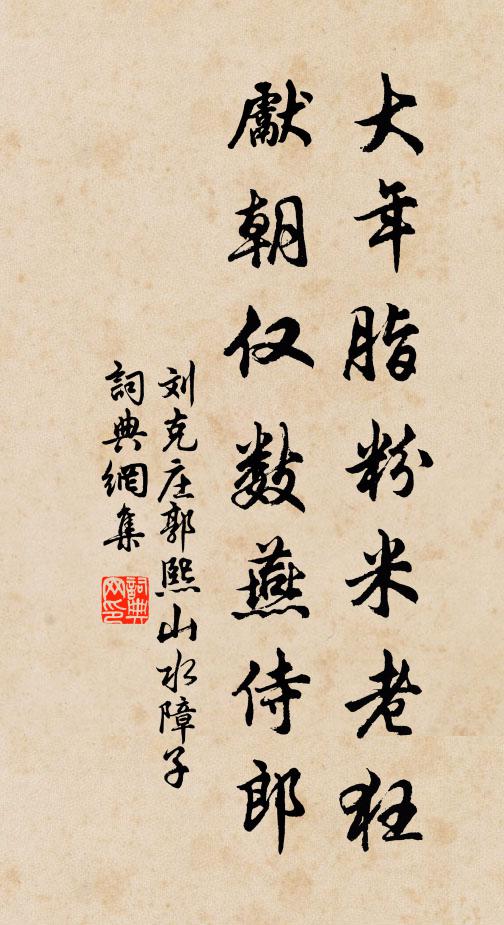 大年脂粉米老狂
献朝仅数燕侍郎
刘克庄郭熙山水障子
詞典網集
詞典网印